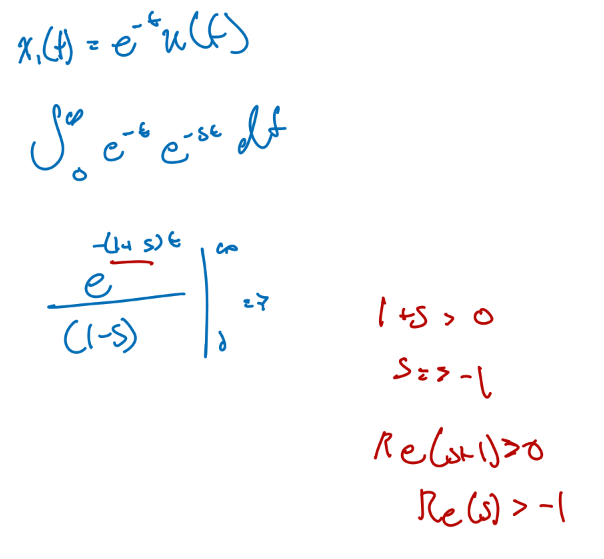 x₁(t) = e^{-t} u(t)
∫₀^∞ e^{-t} e^{-st} dt
e^{-(1+s)t} / (1-s) |₀^∞ =>
1+s > 0
s => -1
Re(s+1)>0
Re(s) > -1